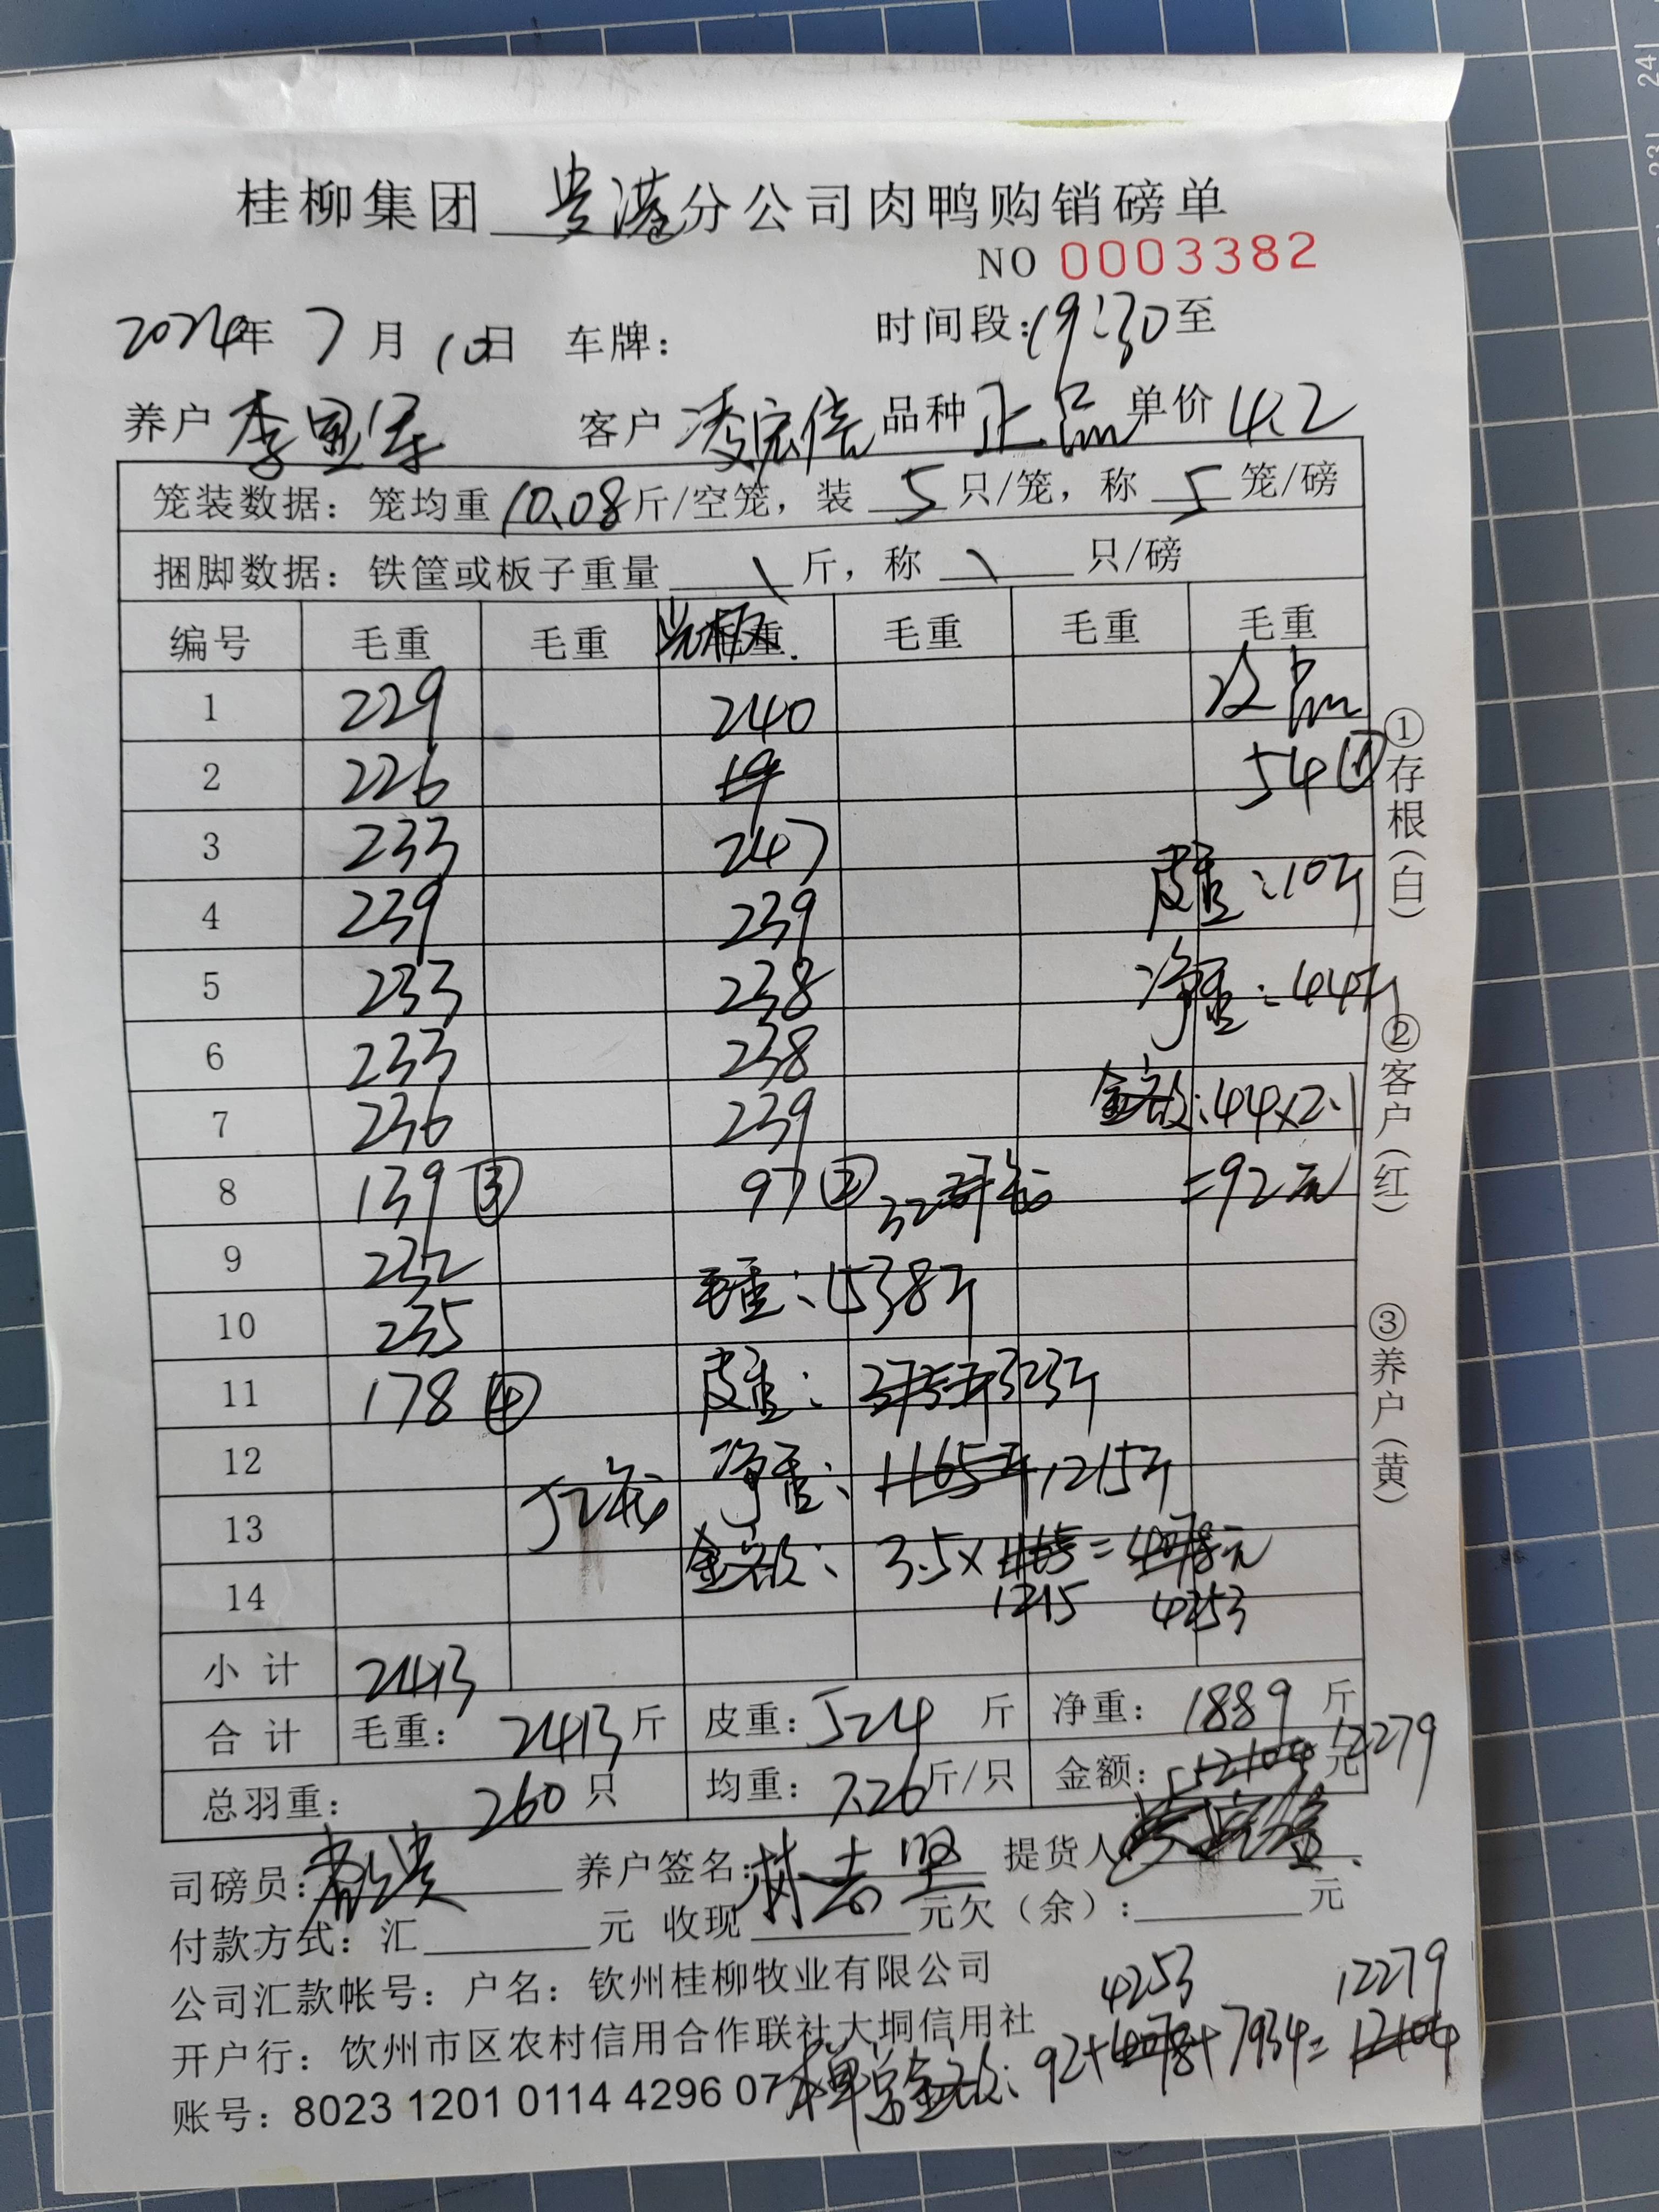 桂柳集团 贵港 分公司肉鸭购销磅单
NO 0003382
2024年 7月 10日 车牌: 时间段:19:30至
养户 李 客户 凌宏信 品种 正品 单价 4.2
笼装数据:笼均重 10.08 斤/空笼,装 5 只/笼,称 5 笼/磅
捆脚数据:铁筐或板子重量 \ 斤,称 \ 只/磅
编号 毛重 毛重 光板 毛重 毛重 毛重 毛重
1 229 240 次品
2 226 19 54 ①
3 233 247
4 239 239 皮重:10斤
5 233 238 净重:44斤
6 233 238
7 236 239 金额:44×2.1
8 139 ③ 97 ② 32 笼 =92元
9 232
10 235 毛重:1538斤
11 178 ④ 皮重: 323斤
12 净重:1165斤 1215斤
13 52笼
14 金额:3.5×1165=4078元
1215 4253
小计 2413
合计 毛重: 2413 斤 皮重: 524 斤 净重: 1889 斤
总羽重: 260 只 均重: 7.26 斤/只 金额: 12104 元 12279
司磅员: 养户签名: 林志坚 提货人:
付款方式:汇 元 收现 元欠(余): 元
公司汇款帐号:户名:钦州桂柳牧业有限公司
开户行:钦州市区农村信用合作联社大垌信用社
4253 12279
账号:8023 1201 0114 4296 07 本单总金额:92+4078+7934=12104
①存根(白)
②客户(红)
③养户(黄)
24
23